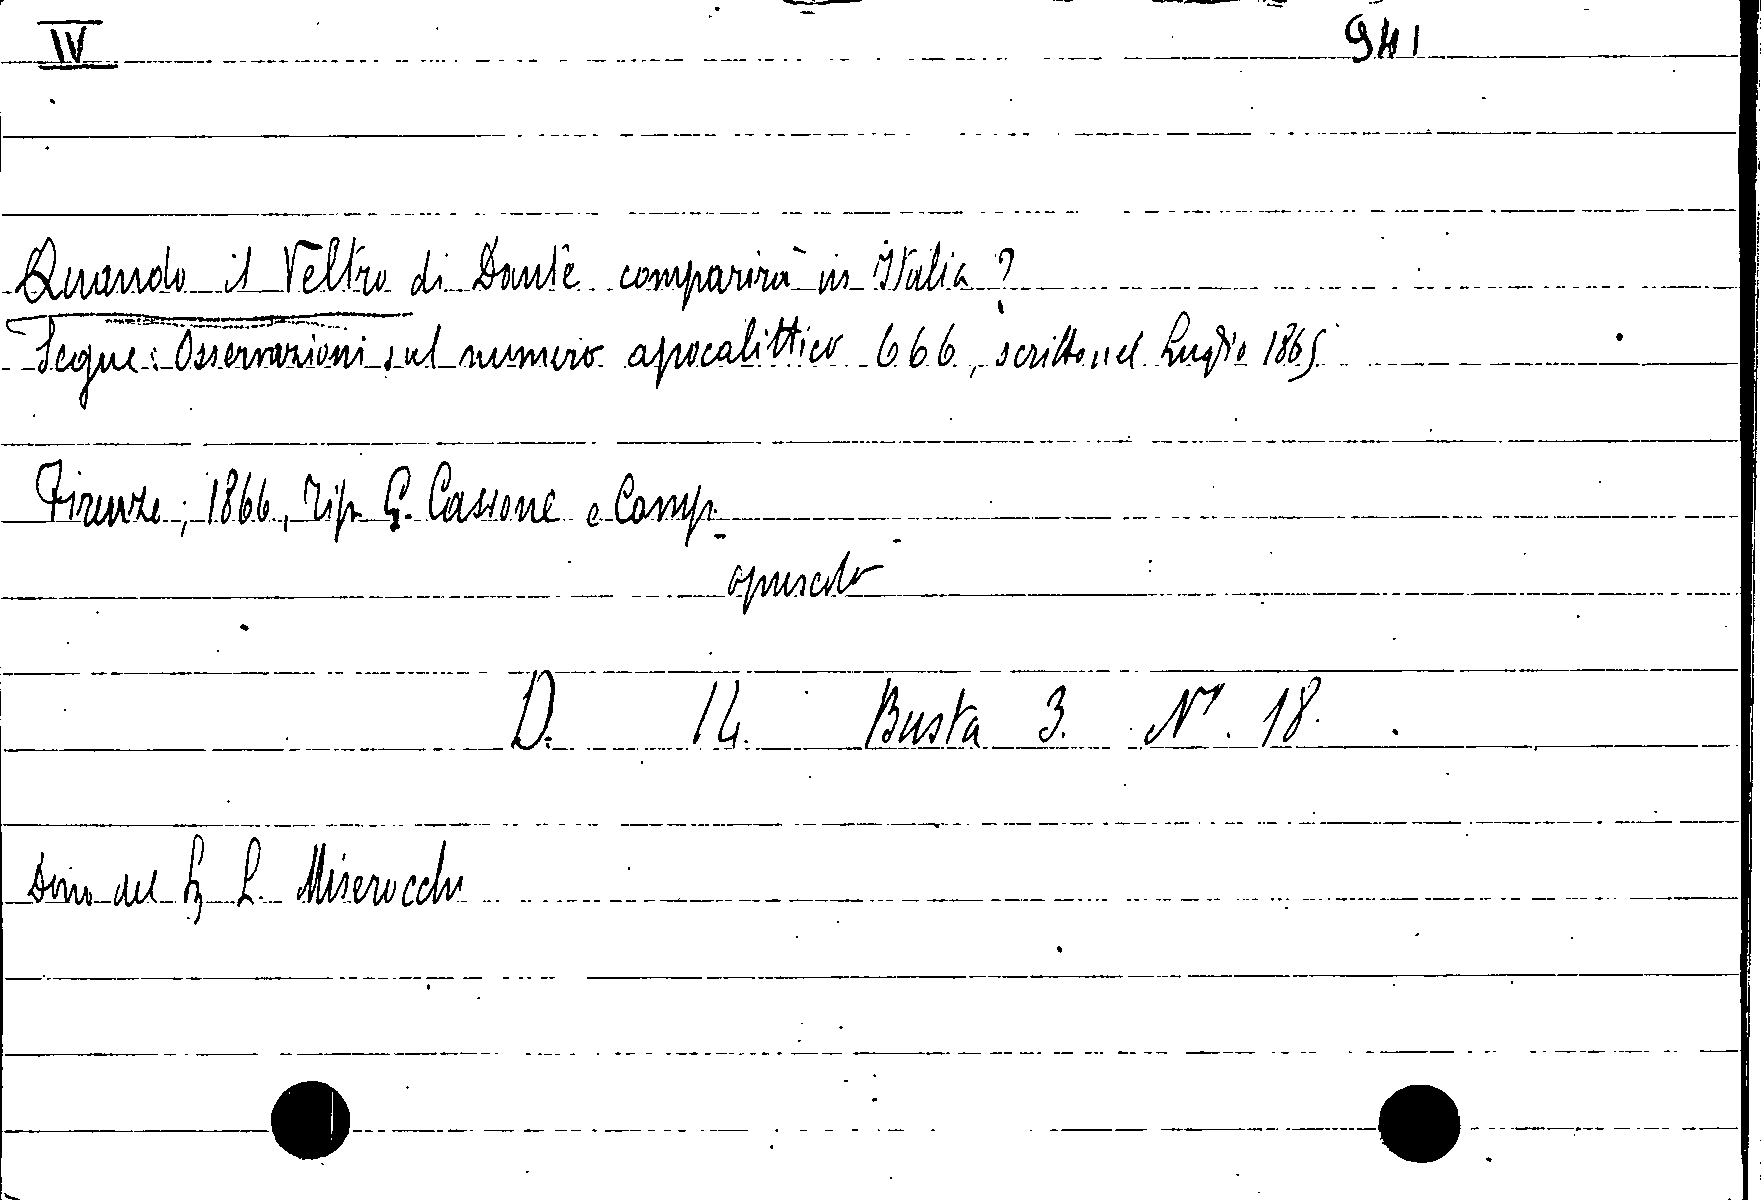 IV 941
Quando il Veltro di Dante comparirà in Italia ?
Segue: Osservazioni sul numero apocalittico 666, scritto nel Luglio 1865.
Firenze, 1866, Tip. G. Cassone e Comp.
opuscolo
D. 14. Busta 3. N°. 18.
Dono del L. Miserocchi